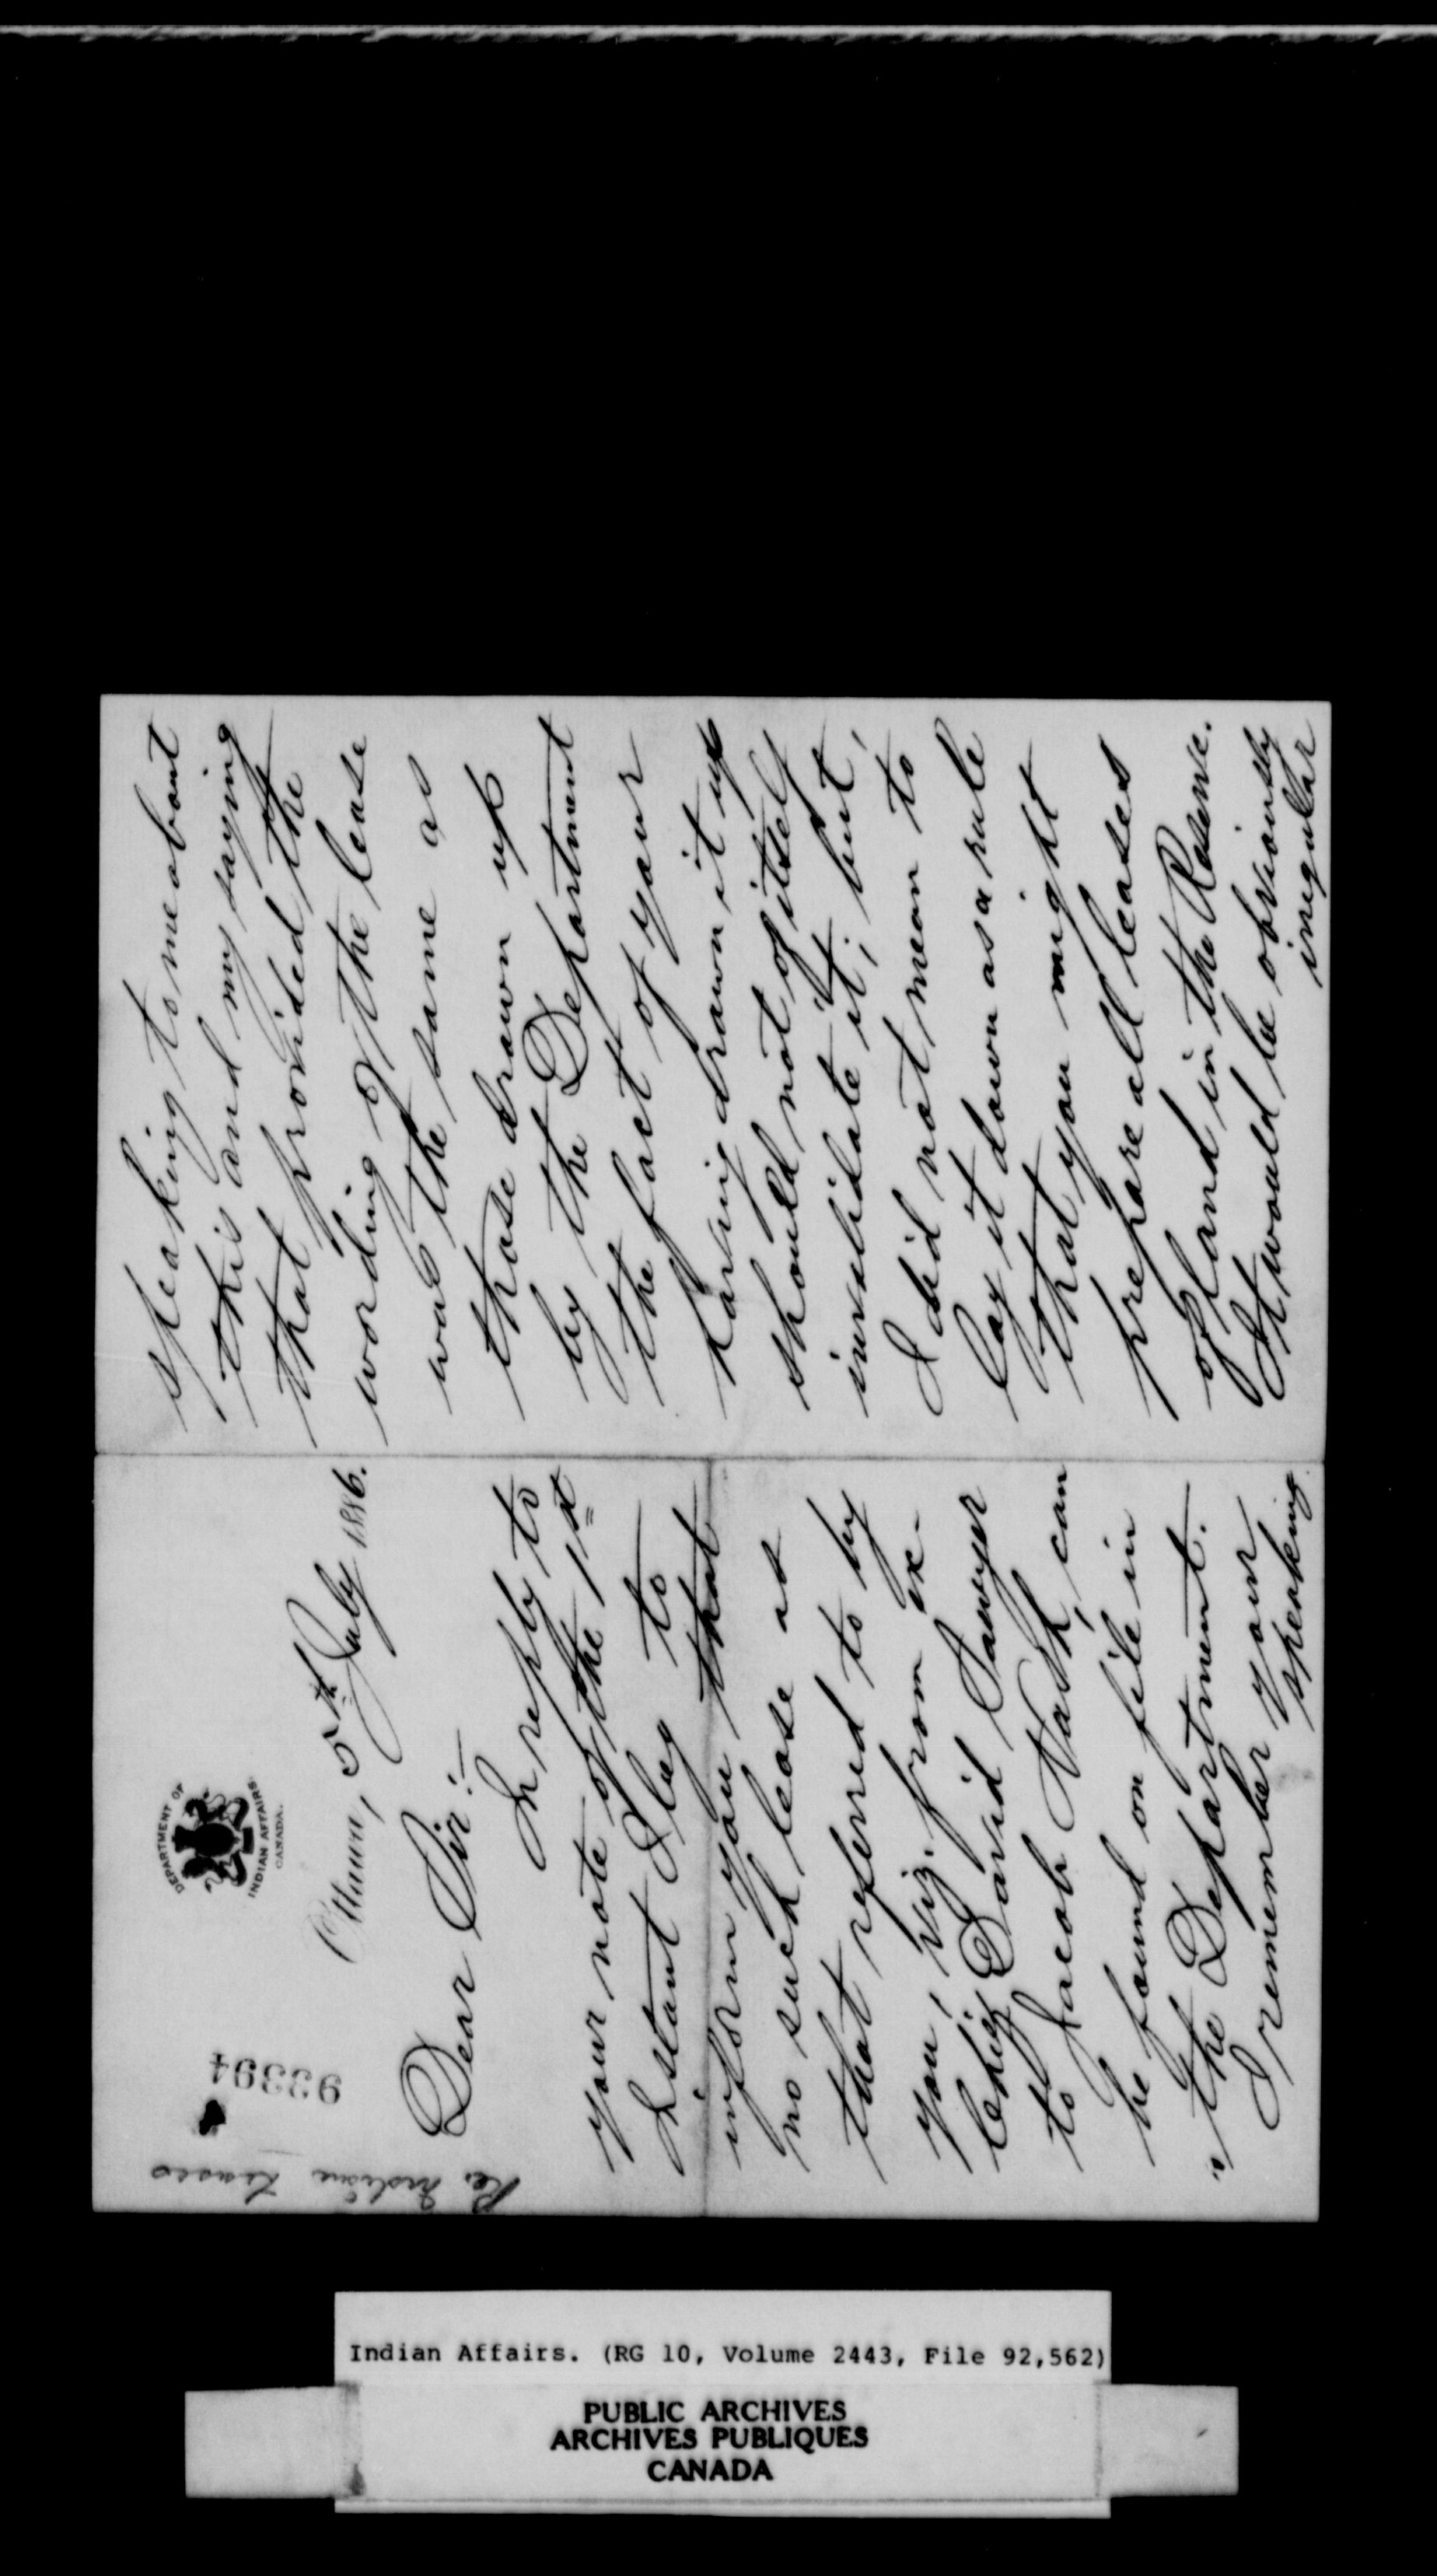 Re. Indian Leases
93394
DEPARTMENT OF
INDIAN AFFAIRS
CANADA.
Ottawa, 5th July 1886.
Dear Sir:—
In reply to
your note of the 1st
Instant I beg to
inform you that
no such lease as
that referred to by
you, viz. from ex-
Chief David Sawyer
to Jacob Nash, can
be found on file in
the Department.
I remember your
speaking
speaking to me about
this and my saying
that provided the
wording of the lease
was the same as
those drawn up
by the Department
the fact of your
having drawn it up
should not of itself
invalidate it; but,
I did not mean to
lay it down as a rule
that you might
prepare all leases
of land in the Reserve.
It would be obviously
irregular
Indian Affairs. (RG 10, Volume 2443, File 92,562)
PUBLIC ARCHIVES
ARCHIVES PUBLIQUES
CANADA